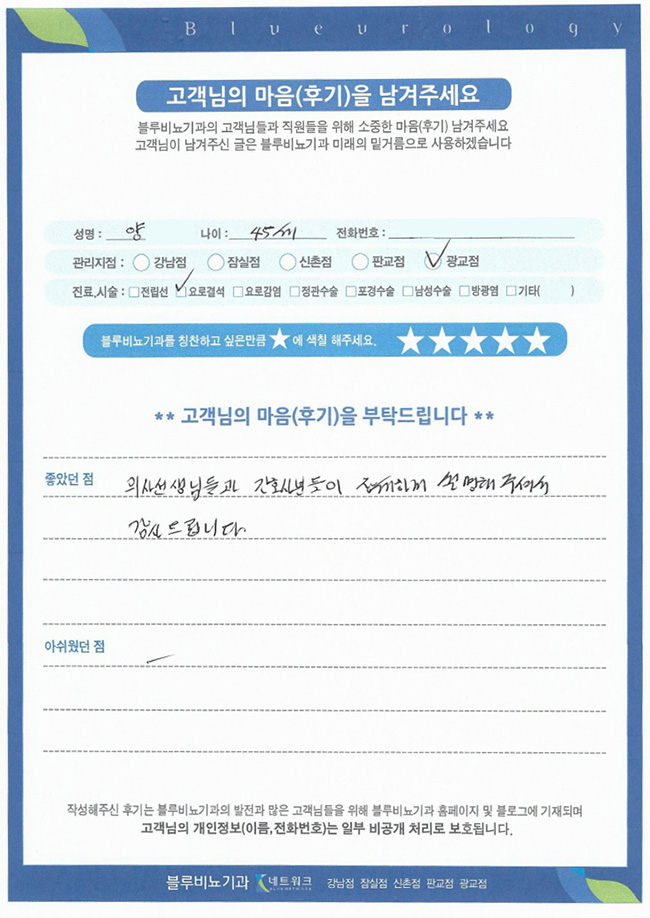 Blueurology
고객님의 마음(후기)을 남겨주세요
블루비뇨기과의 고객님들과 직원들을 위해 소중한 마음(후기) 남겨주세요
고객님이 남겨주신 글은 블루비뇨기과 미래의 밑거름으로 사용하겠습니다
성명 : 양 나이 : 45세 전화번호 :
관리지점 : 강남점 잠실점 신촌점 판교점 광교점
진료,시술 : 전립선 요로결석 요로감염 정관수술 포경수술 남성수술 방광염 기타( )
블루비뇨기과를 칭찬하고 싶은만큼 ★에 색칠 해주세요. ★★★★★
** 고객님의 마음(후기)을 부탁드립니다 **
좋았던 점 의사선생님들과 간호사분들이 설명해주셔서
감사드립니다
아쉬웠던 점
작성해주신 후기는 블루비뇨기과의 발전과 많은 고객님들을 위해 블루비뇨기과 홈페이지 및 블로그에 기재되며
고객님의 개인정보(이름,전화번호)는 일부 비공개 처리로 보호됩니다.
블루비뇨기과 네트워크 BLUE NETWORK 강남점 잠실점 신촌점 판교점 광교점